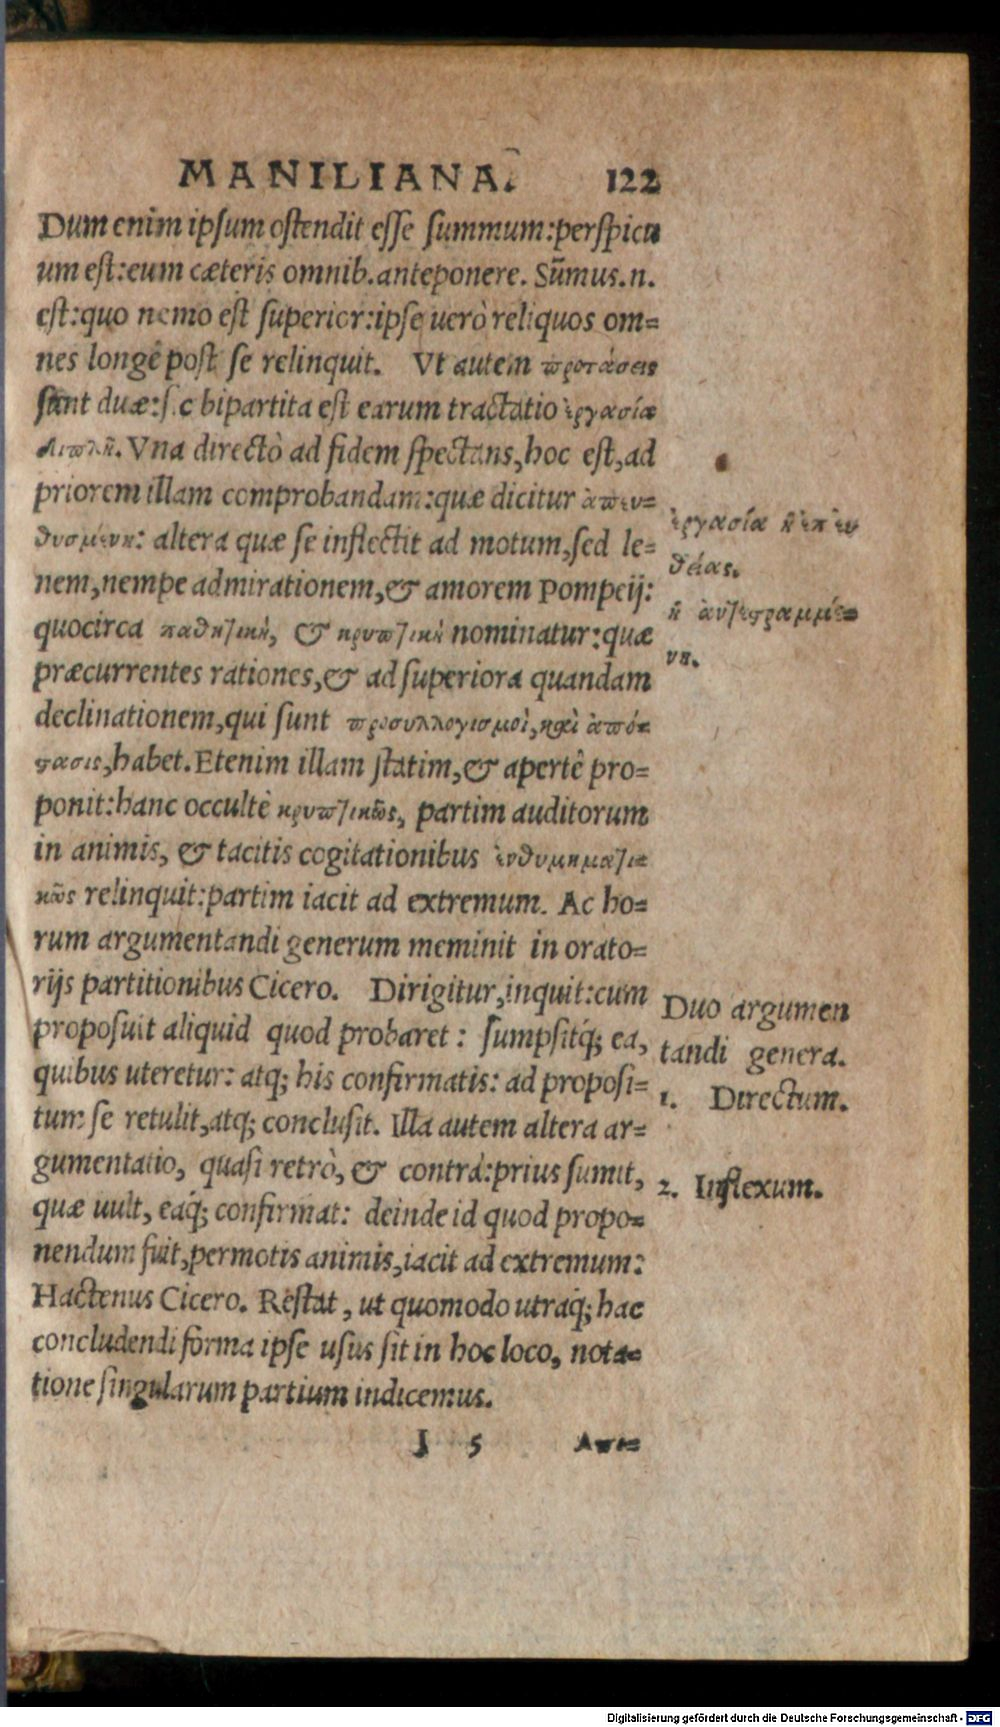 MANILIANA. 122
Dum enim ipsum ostendit esse summum:perspicu
um est:eum cæteris omnib.anteponere. Sūmus.n.
est:quo nemo est superior:ipse uerò reliquos om=
nes longè post se relinquit. Vt autem προτάσεις
sunt duæ:sic bipartita est earum tractatio ἐργασία
διπλῆ. Vna directò ad fidem spectans,hoc est,ad
priorem illam comprobandam:quæ dicitur ἀπευ=
θυσμένη: altera quæ se inflectit ad motum,sed le=
nem,nempe admirationem,& amorem Pompeij:
quocirca παθητικὴ, & κρυπτικὴ nominatur:quæ
præcurrentes rationes,& ad superiora quandam
declinationem,qui sunt προσυλλογισμοὶ,καὶ ἀπό=
φασις,habet.Etenim illam statim,& apertè pro=
ponit:hanc occultè κρυπτικῶς, partim auditorum
in animis, & tacitis cogitationibus ἐνθυμηματι=
κῶς relinquit:partim iacit ad extremum. Ac ho=
rum argumentandi generum meminit in orato=
rijs partitionibus Cicero. Dirigitur,inquit:cum
proposuit aliquid quod probaret: sumpsitq́; ea,
quibus uteretur: atq; his confirmatis: ad proposi=
tum se retulit,atq; conclusit. Illa autem altera ar=
gumentatio, quasi retrò, & contrà:prius sumit,
quæ uult, eaq́; confirmat: deinde id quod propo=
nendum fuit,permotis animis,iacit ad extremum:
Hactenus Cicero. Restat, ut quomodo utraq́; hac
concludendi forma ipse usus sit in hoc loco, nota=
tione singularum partium indicemus.
I 5 Απε=
ἐργασία ἡ ἐπ' εὐ
θείας.
ἡ
νη.
Duo argumen
tandi genera.
1. Directum.
2. Inflexum.
Digitalisierung gefördert durch die Deutsche Forschungsgemeinschaft - DFG